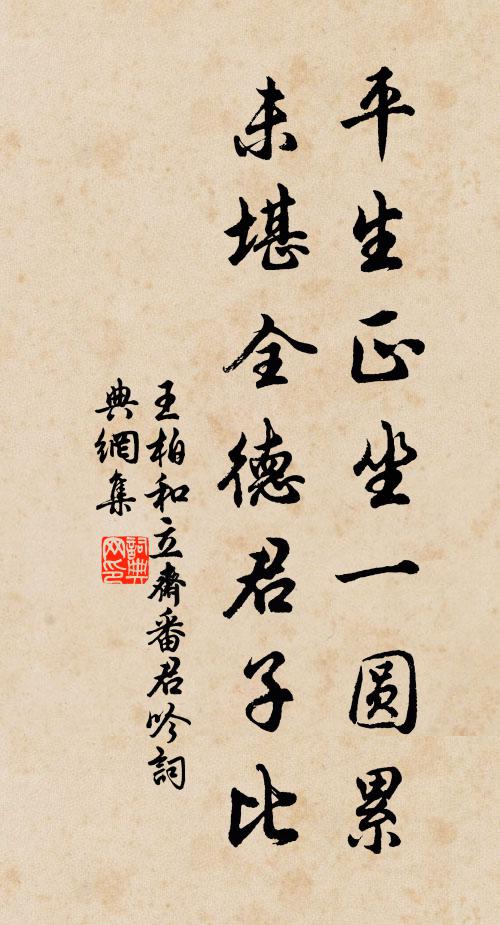 平生正坐一圆累
未堪全德君子比
王柏和立齋番君吟詞
典網集
詞典
网印